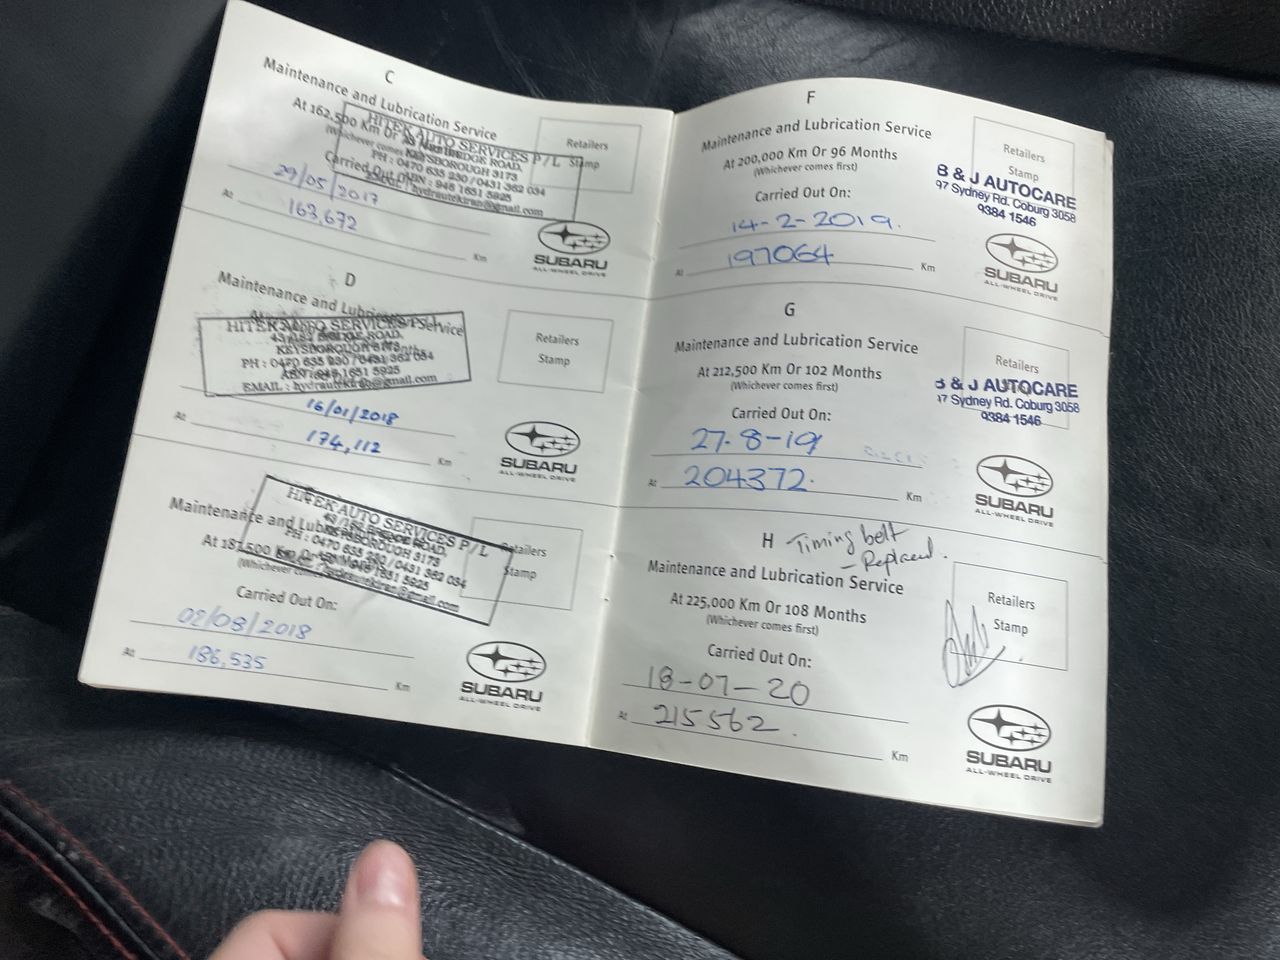 C
Maintenance and Lubrication Service
At 162,500 Km Or
(Whichever comes
Retailers
Stamp
HITEK AUTO SERVICES P/L
KEYSBOROUGH 3173
PH : 0470 635 230 / 0431 362 034
ABN : 945 1651 5925
hydrautekiran@gmail.com
Carried Out
29/05/2017
At 163,672 Km
SUBARU
ALL-WHEEL DRIVE
D
Maintenance and Lubrication Service
Retailers
Stamp
HITEK AUTO SERVICES P/L
KEYSBOROUGH 3173
PH : 0470 635 230 / 0431 362 034
ABN : 945 1651 5925
EMAIL : hydrautekiran@gmail.com
16/01/2018
At 174,112 Km
SUBARU
ALL-WHEEL DRIVE
Maintenance and
At 187,500 Km Or
(Whichever comes
Retailers
Stamp
HITEK AUTO SERVICES P/L
KEYSBOROUGH 3173
PH : 0470 635 230 / 0431 362 034
945 1651 5925
hydrautekiran@gmail.com
Carried Out On:
02/08/2018
At 186,535 Km
SUBARU
ALL-WHEEL DRIVE
F
Maintenance and Lubrication Service
At 200,000 Km Or 96 Months
(Whichever comes first)
Retailers
Stamp
B & J AUTOCARE
97 Sydney Rd. Coburg 3058
9384 1546
Carried Out On:
14-2-2019.
At 197064 Km
SUBARU
ALL-WHEEL DRIVE
G
Maintenance and Lubrication Service
At 212,500 Km Or 102 Months
(Whichever comes first)
Retailers
& J AUTOCARE
Sydney Rd. Coburg 3058
9384 1546
Carried Out On:
27-8-19
At 204372. Km
SUBARU
ALL-WHEEL DRIVE
H Timing belt
- Replaced.
Maintenance and Lubrication Service
At 225,000 Km Or 108 Months
(Whichever comes first)
Retailers
Stamp
Carried Out On:
18-07-20
At 215562. Km
SUBARU
ALL-WHEEL DRIVE